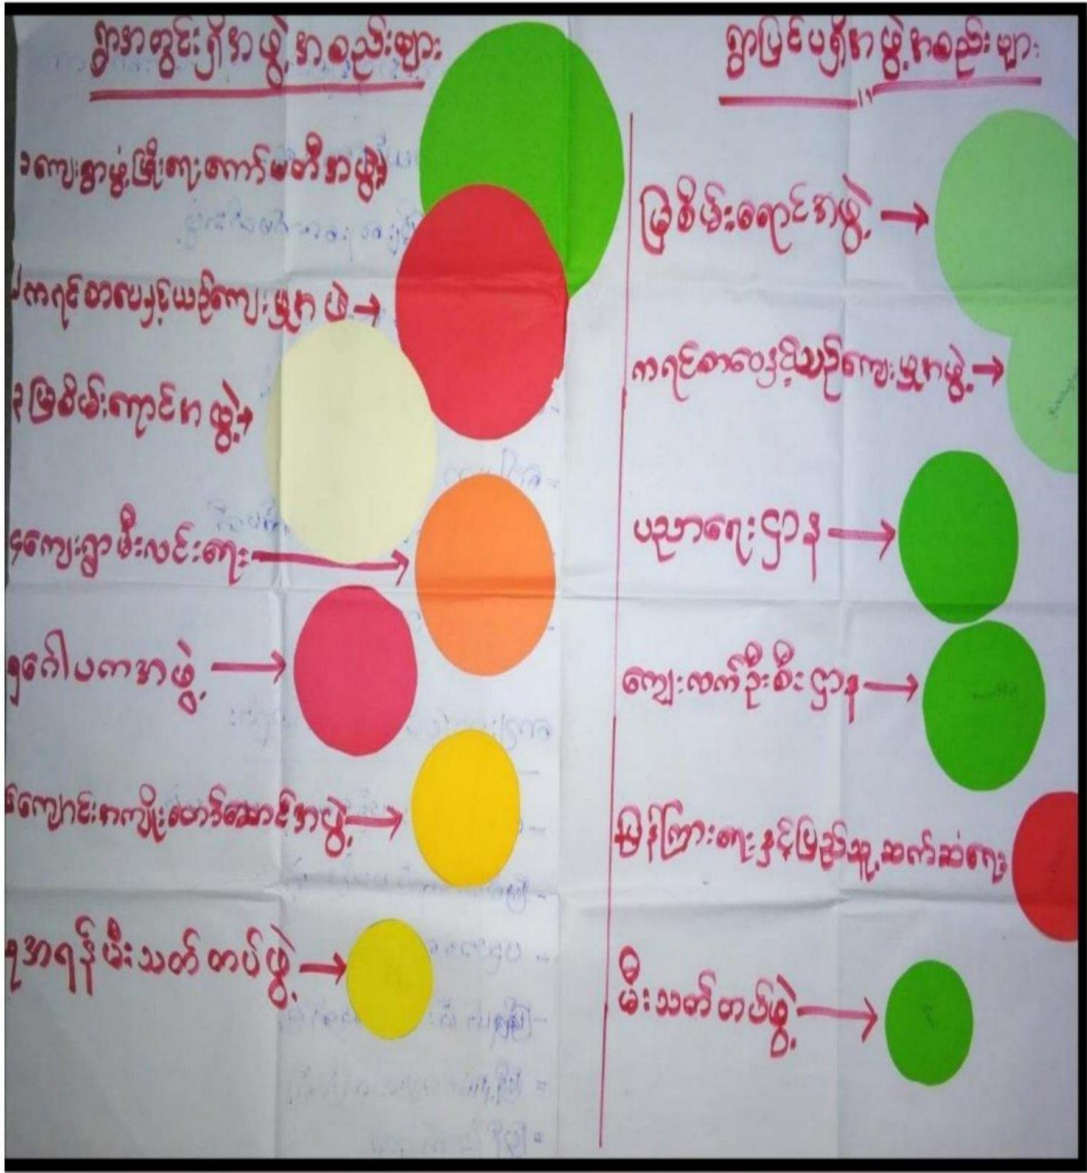 ရွာအတွင်းရှိအဖွဲ့အစည်းများ
၁ကျေးရွာဖွံ့ဖြိုးရေးကော်မတီအဖွဲ့
၂ကရင်စာပေနှင့်ယဉ်ကျေးမှုအဖွဲ့
၃မြစိမ်းရောင်အဖွဲ့
၄ကျေးရွာမီးလင်းရေး
၅ဂေါပကအဖွဲ့
၆ကျောင်းအကျိုးတော်ဆောင်အဖွဲ့
၇အရန်မီးသတ်တပ်ဖွဲ့
ရွာပြင်ပရှိအဖွဲ့အစည်းများ
မြစိမ်းရောင်အဖွဲ့
ကရင်စာပေနှင့်ယဉ်ကျေးမှုအဖွဲ့
ပညာရေးဌာန
ကျေးလက်ဦးစီးဌာန
ပြန်ကြားရေးနှင့်ပြည်သူ့ဆက်ဆံရေး
မီးသတ်တပ်ဖွဲ့